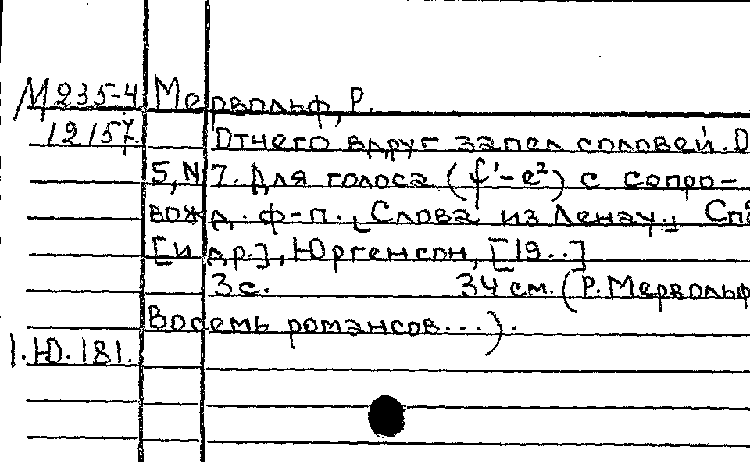 М235-4 Мервольф, Р.
12157 Отчего вдруг запел соловей. О
5, N 7. Для голоса (f'-e²) с сопро-
вожд. ф-п. [Слова из Ленау.] Спб
[и др.], Юргенсон, [19..]
3с. 34 см. (Р. Мервольф
Восемь романсов...).
1.Ю.181.